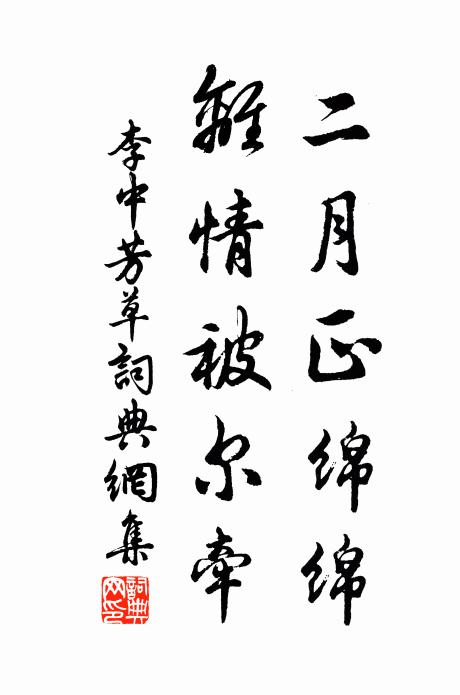 二月正綿綿
離情被尔牽
李中芳草詞典網集
詞典网印